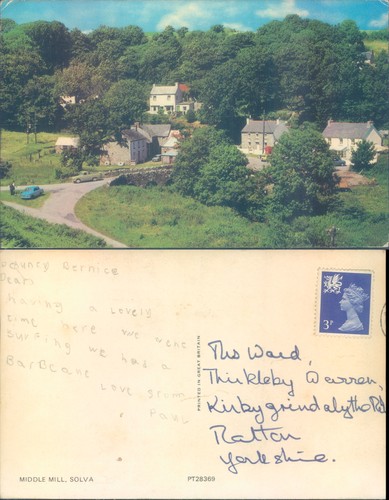 MIDDLE MILL, SOLVA
Bernice
Dears
Having a Lovely
time here we went
Surfing we had a
BarBeane
Love from
Paul
PRINTED IN GREAT BRITAIN
3P
Ths Ward,
Thirkleby Warren,
Kirbygrindalythe Rd
Ralton
Yorkshire.
MIDDLE MILL, SOLVA
PT28369